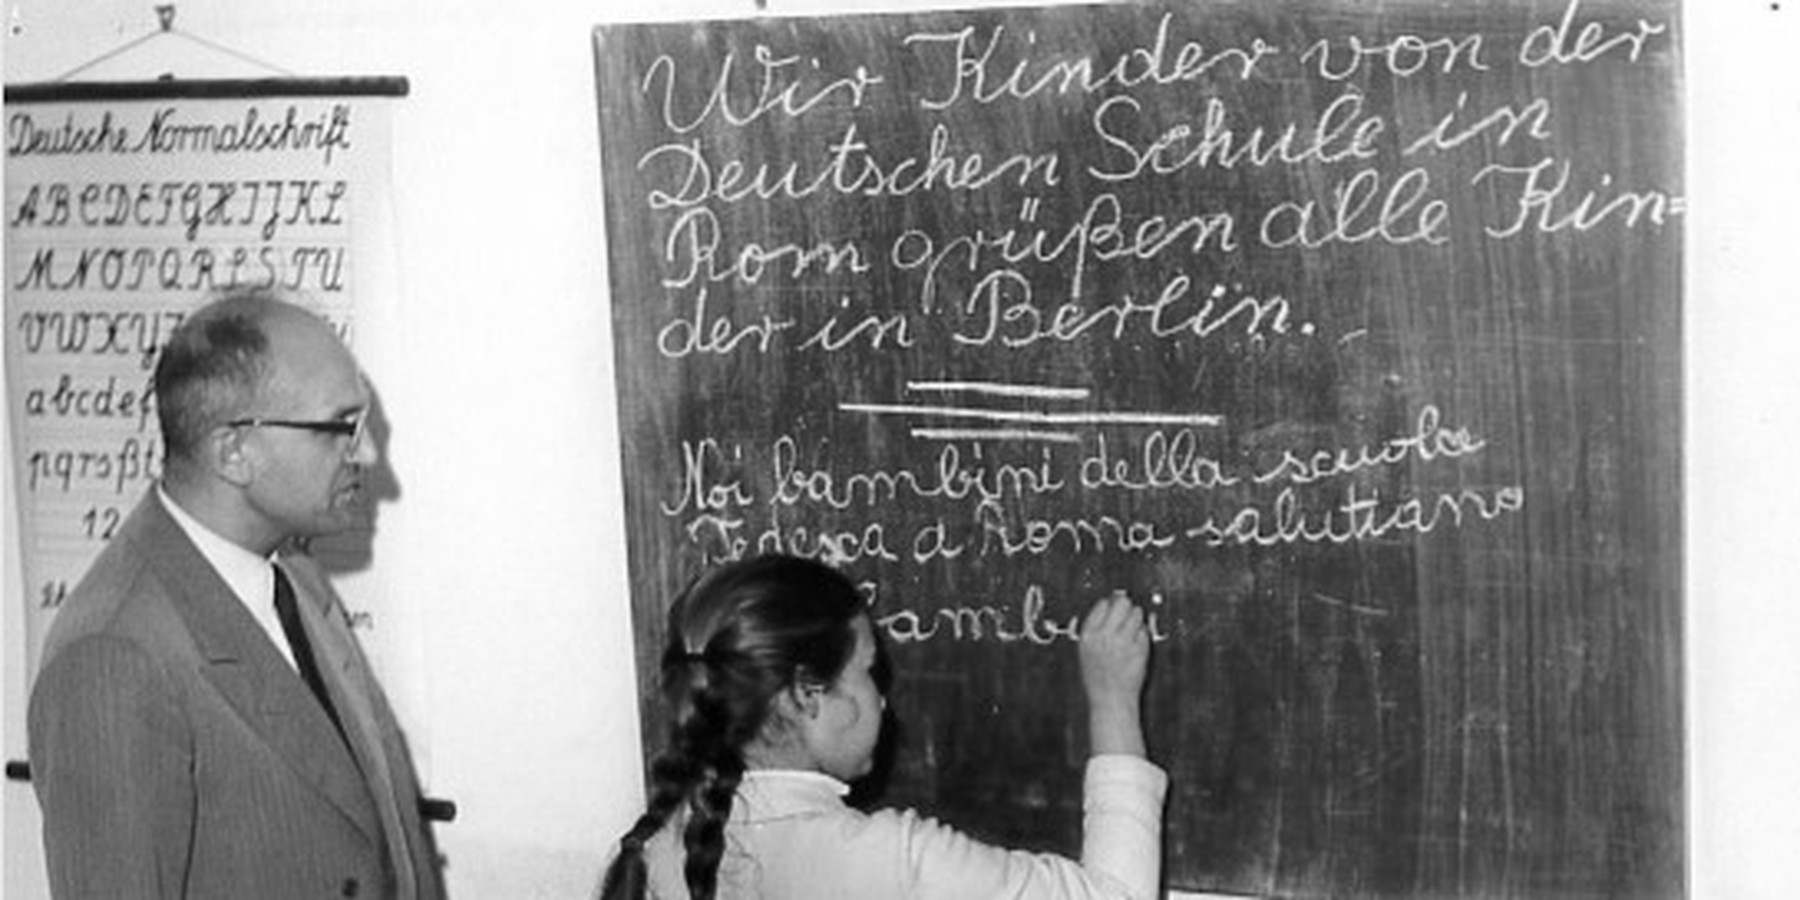 Deutsche Normalschrift
A B C D E F G H I J K L
M N O P Q R L S T U
V W X Y Z
a b c d e f
p q r s ß t
1 2
Wir Kinder von der
Deutschen Schule in
Rom grüßen alle Kin=
der in Berlin.
Noi bambini della scuola
Tedesca a Roma salutiano